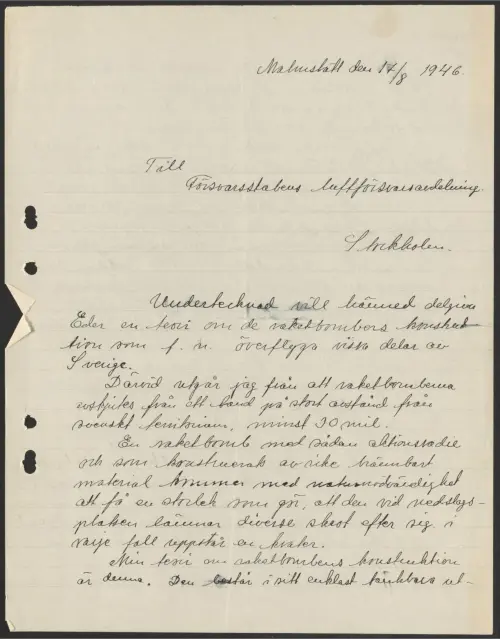 Malmslätt den 17/8 1946.
Till
Försvarsstabens luftförsvarsavdelning.
Stockholm.
Undertecknad vill härmed delgiva
Eder en teori om de raketbombers konstruk-
tion som f. n. överflyga vissa delar av
Sverige.
Därvid utgår jag från att raketbomberna
avskjutes från ett land på stort avstånd från
svenskt territorium, minst 90 mil.
En raketbomb med sådan aktionsradie
och som konstruerats av icke brännbart
material kommer med naturnödvändighet
att få en storlek som gör, att den vid nedslags-
platsen lämnar diverse skrot efter sig, i
varje fall uppstår en krater.
Min teori om raketbombens konstruktion
är denna. Den består i sitt enklast tänkbara ut-